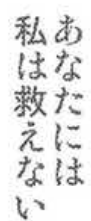 あなたには
私は救えない